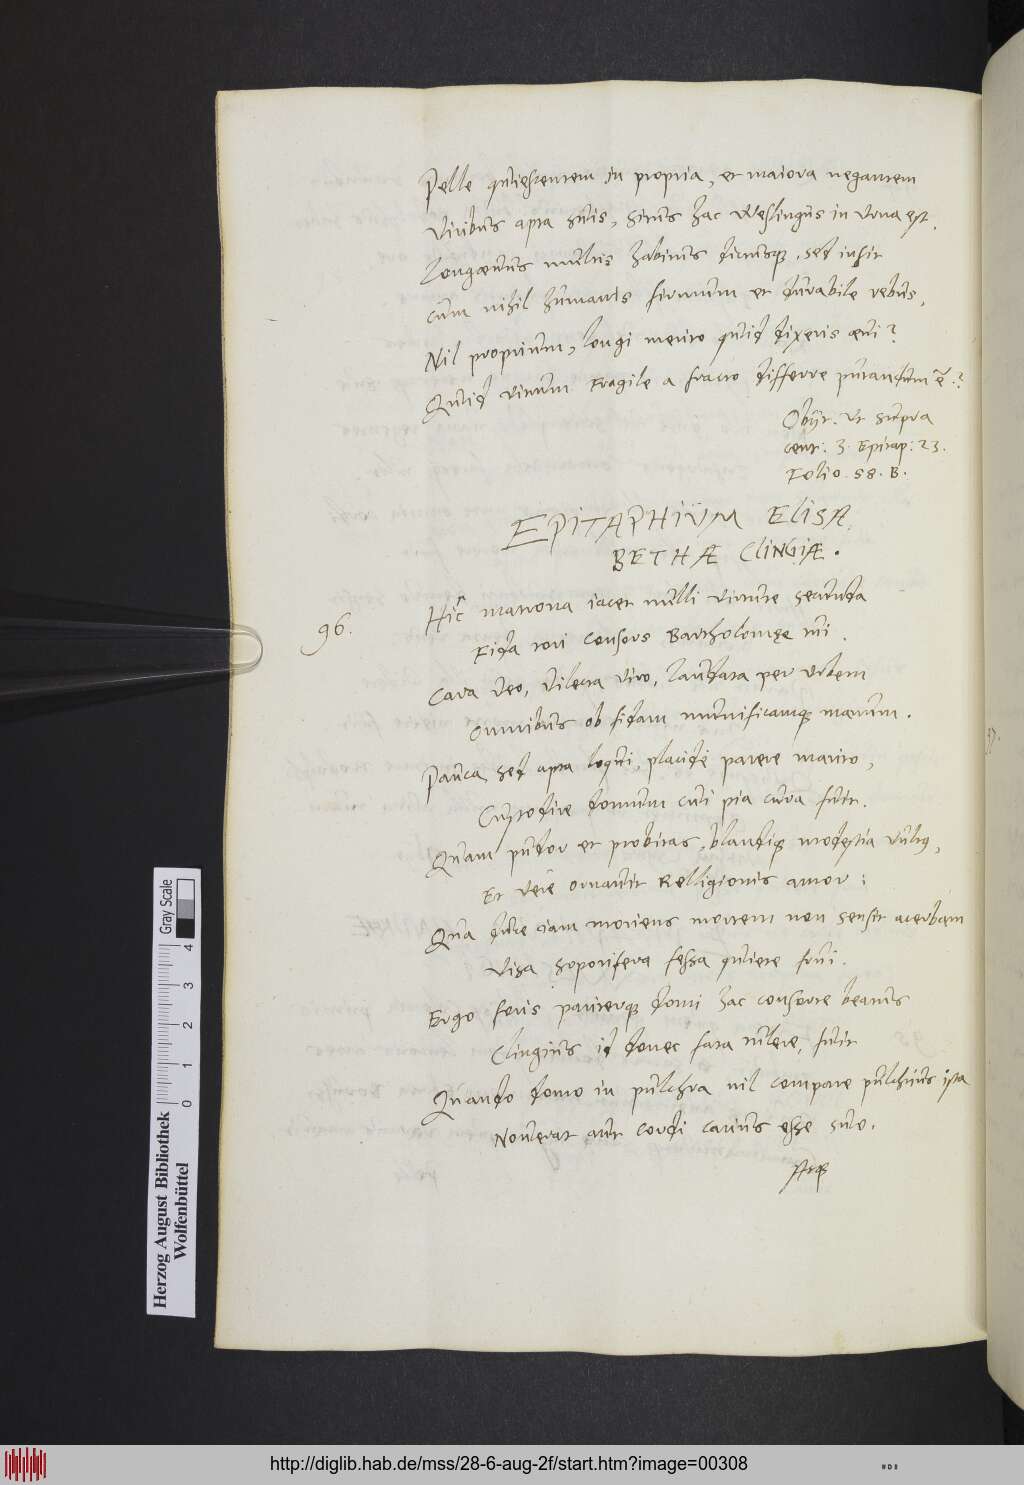 Pelle quiescentem in propria, et maiora negantem
Viribus apta suis, situs hac Weslingus in Vrna est.
Longaevus multis habitus dictusque, sed infit
cum nihil humanis firmum et durabile rebus,
Nil proprium, longi merito quid dixeris aevi?
Quid vitrum fragile a fracto differre putandum ē.?
Obijt. vt supra
cent: 3. Epitap: 23.
Folio. 58. B.
EPITAPHIUM ELISA
BETHAE CLINGIAE.
96.
Hîc matrona iacet nulli virtute secunda
Fida tori consors Bartholomęe tui.
Cara Deo, dilecta viro, laudata per urbem
Omnibus ob fidam munificamque manum.
Pauca, sed apta loqui, placidè parere marito,
Custodire domum cui pia cura fuit.
Quam pudor et probitas, blandique modestia vultus,
Et verè ornauit Relligionis amor:
Qua duce iam moriens mortem non sensit acerbam
Visa soporifera fessa quiete frui.
Ergo foris pariterque domi hac consorte beatus
Clingius id donec fata tulere, fuit
Quando domo in pulchra nil compare pulchrius ista
Nouerat aut cordi carius esse suo.
Atque
Herzog August Bibliothek
Wolfenbüttel
0 1 2 3 4
Gray Scale
http://diglib.hab.de/mss/28-6-aug-2f/start.htm?image=00308